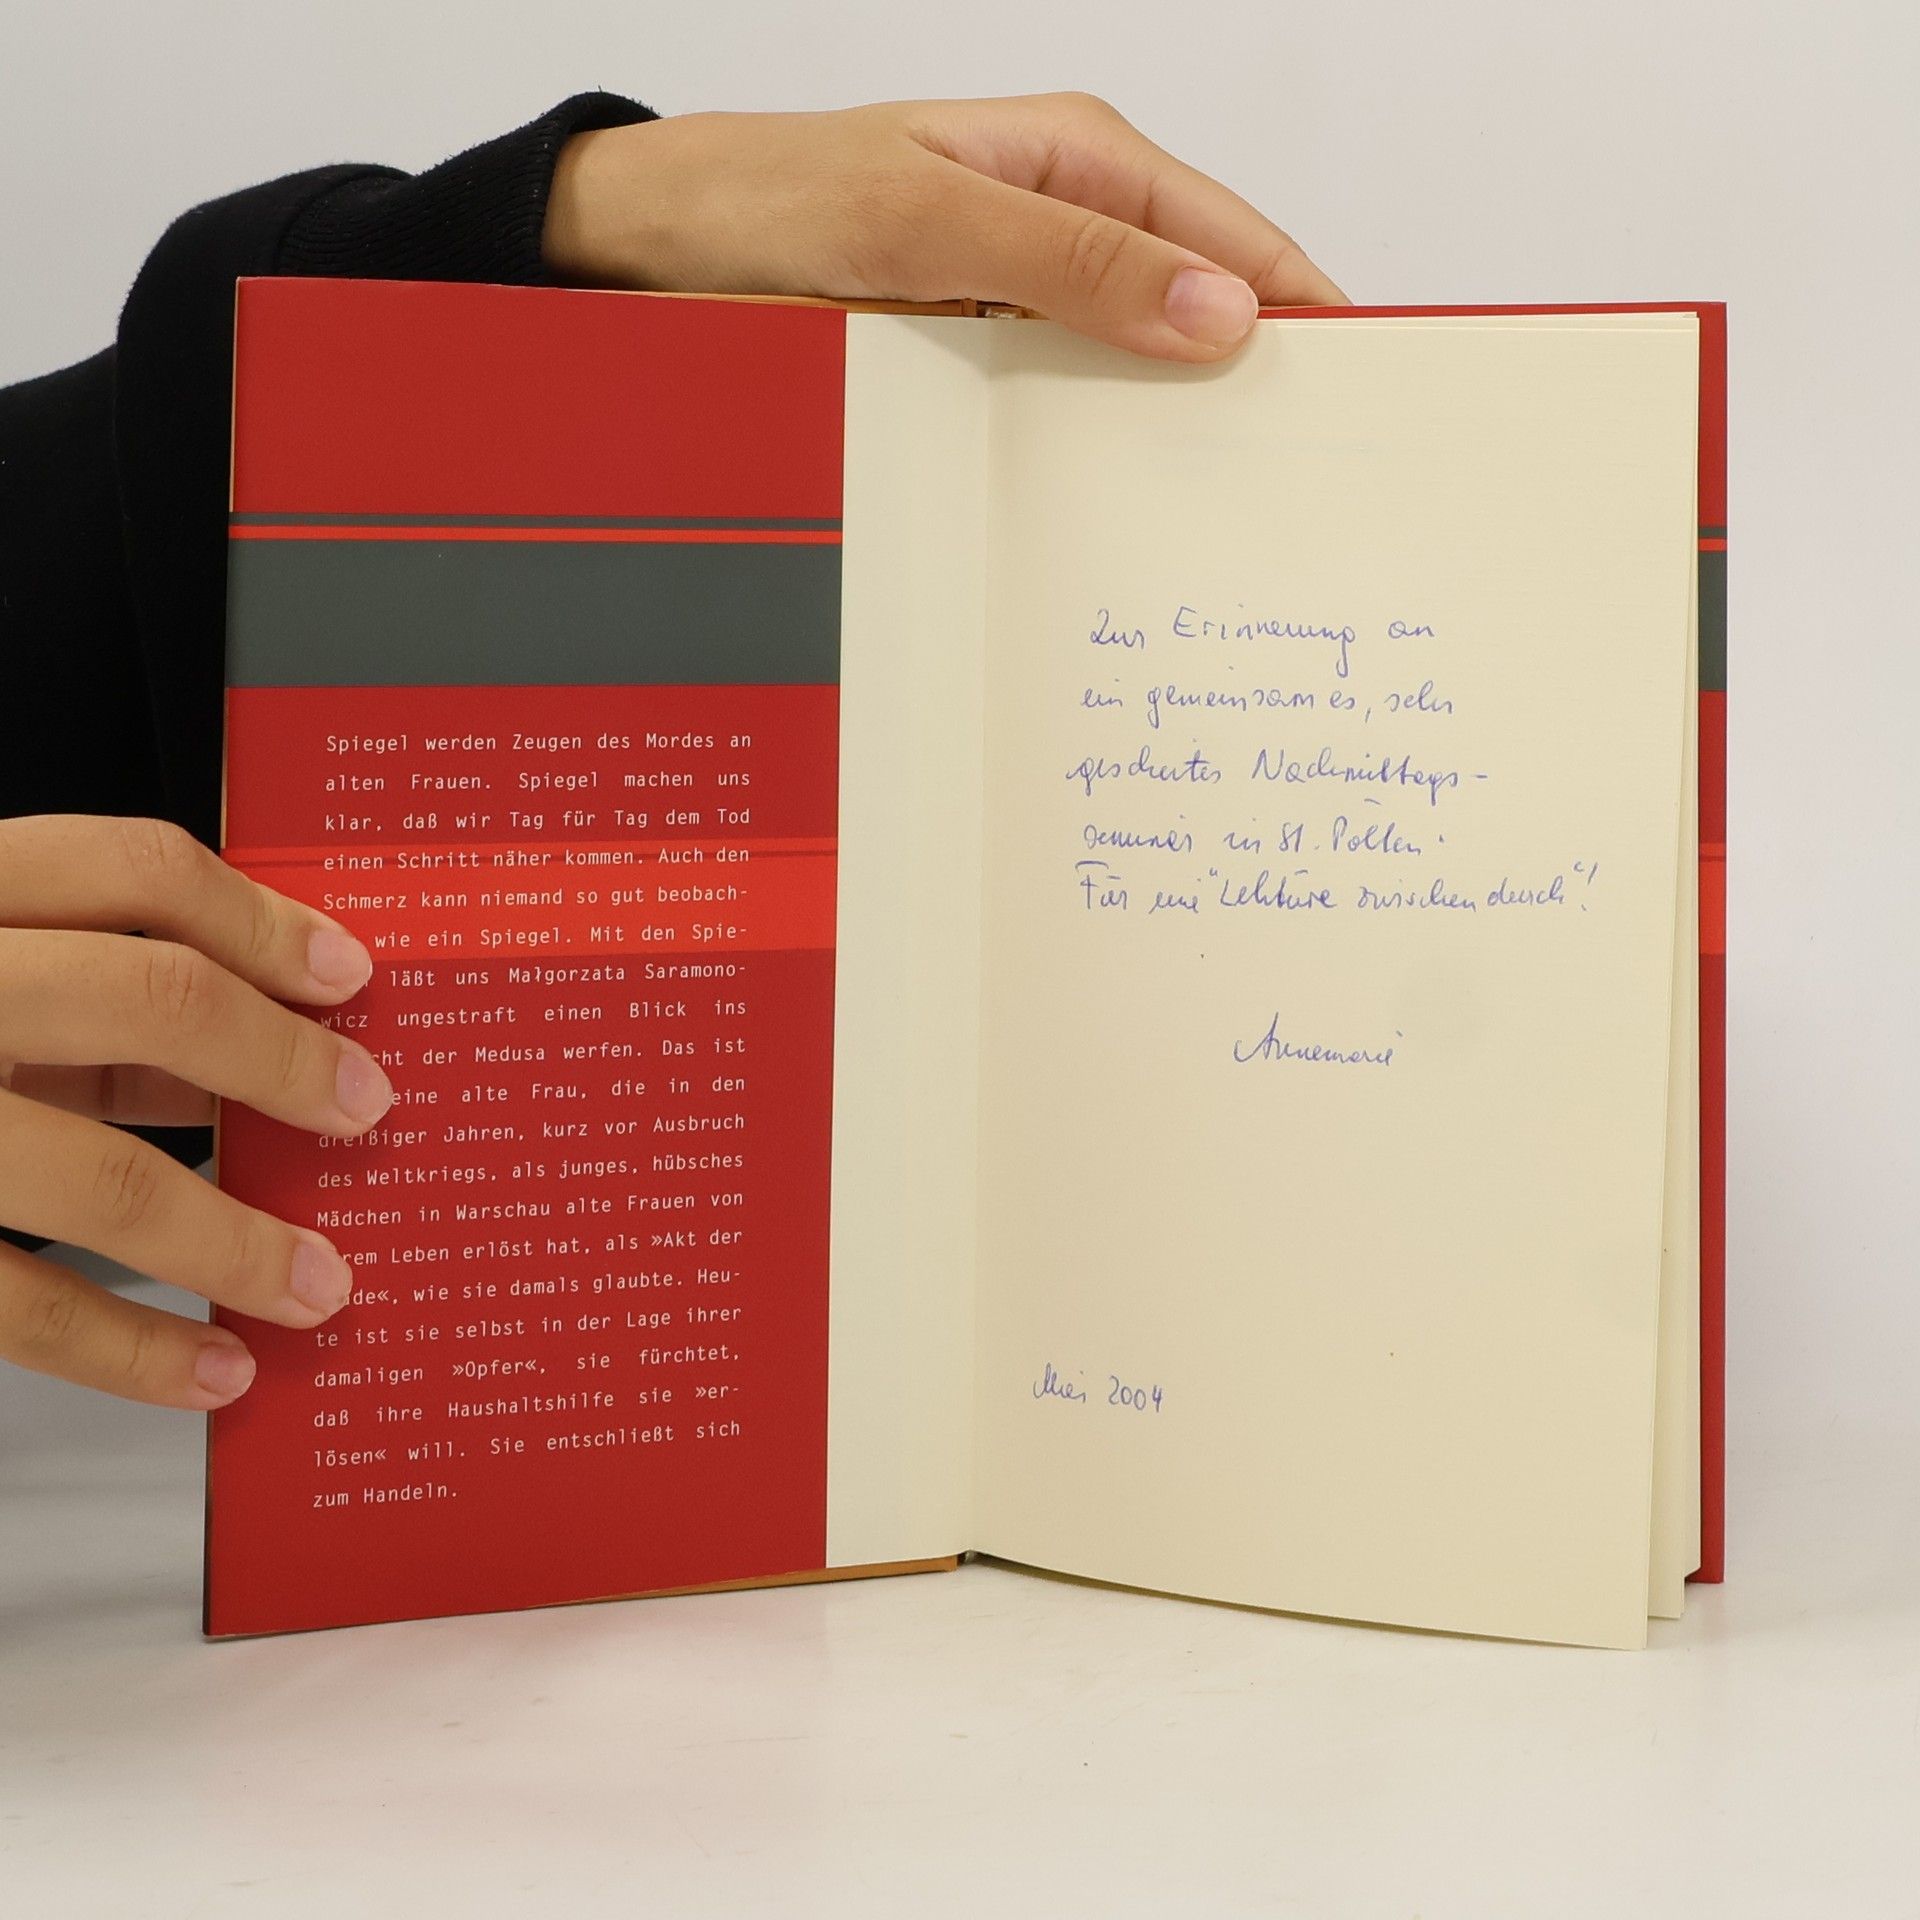 Spiegel werden Zeugen des Mordes an
alten Frauen. Spiegel machen uns
klar, daß wir Tag für Tag dem Tod
einen Schritt näher kommen. Auch den
Schmerz kann niemand so gut beobach-
wie ein Spiegel. Mit den Spie-
läßt uns Małgorzata Saramono-
wicz ungestraft einen Blick ins
der Medusa werfen. Das ist
eine alte Frau, die in den
dreißiger Jahren, kurz vor Ausbruch
des Weltkriegs, als junges, hübsches
Mädchen in Warschau alte Frauen von
Leben erlöst hat, als »Akt der
wie sie damals glaubte. Heu-
te ist sie selbst in der Lage ihrer
damaligen »Opfer«, sie fürchtet,
daß ihre Haushaltshilfe sie »er-
lösen« will. Sie entschließt sich
zum Handeln.
Zur Erinnerung an
ein gemeinsames, sehr
gescheites Nachmittags-
seminar in St. Pölten.
Für eine "Lektüre zwischendurch"!
Annemarie
Mai 2004